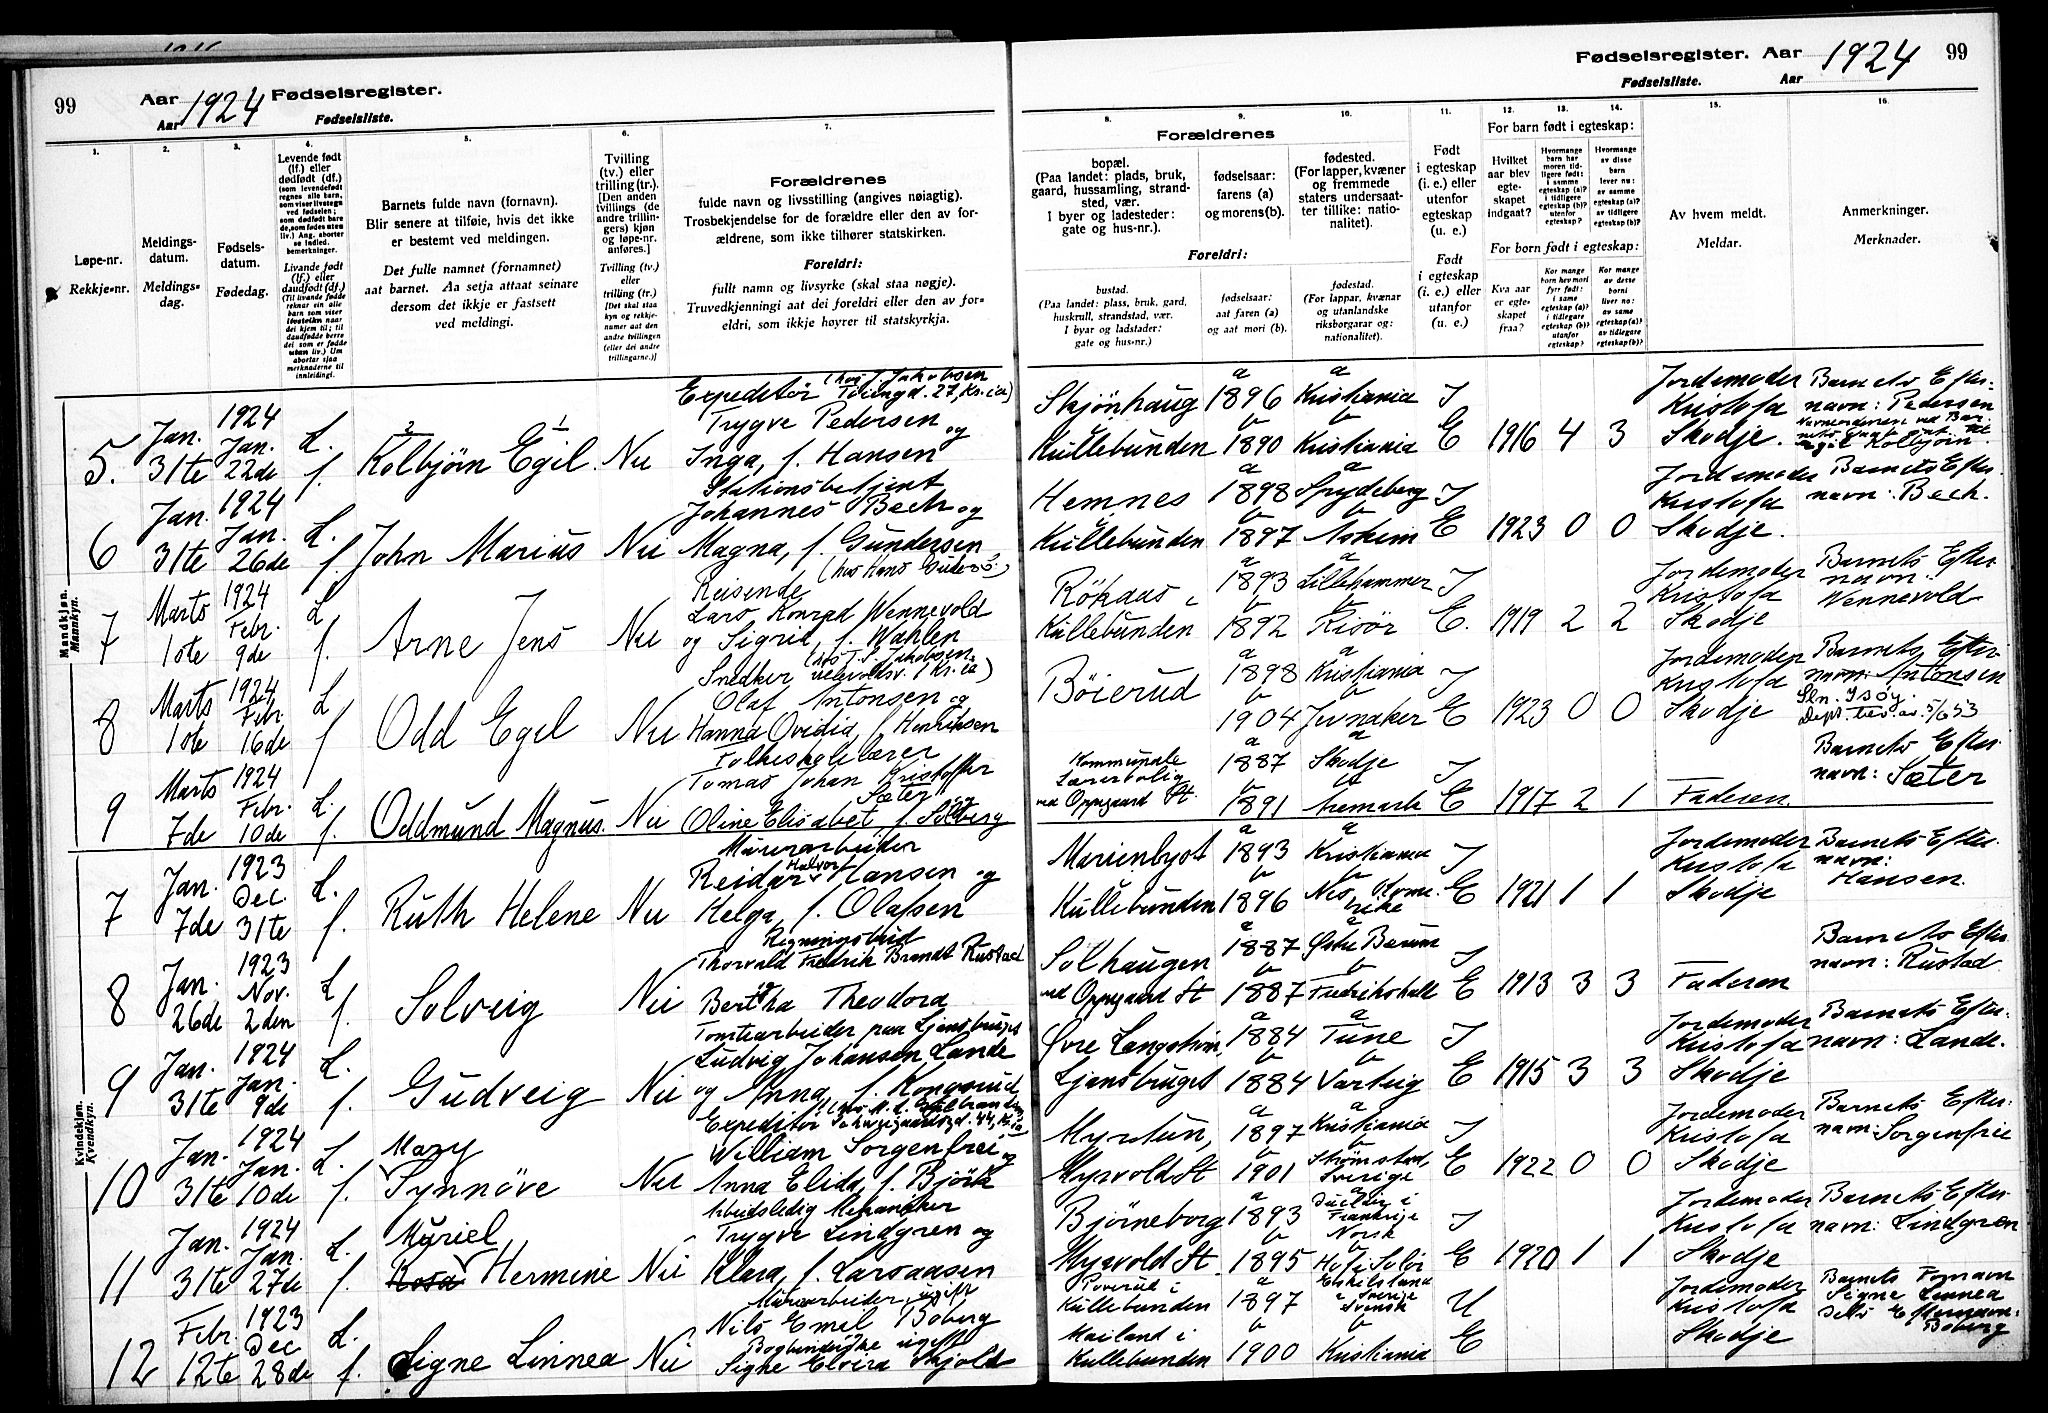 99 Aar 1924 Fødselsregister.
Aar Fødselsliste.
1. 2. 3. 4. 5. 6. 7.
Løpe-nr.
Rekkje-nr.
Meldings-
datum.
Meldings-
dag.
Fødsels-
datum.
Fødedag.
Levende født
(lf.) eller
dødfødt (df.)
(som levendefødt
regnes alle barn,
som viser livstegn
ved fødselen;
som dødfødt bare
de, som fødes uten
liv.) Ang. aborter
se indled.
bemerkninger.
Livande født
(lf.) eller
daudfødt (df.)
(Til livande fødde
reknar ein alle
born som viser
livsteikn naar
dei kjem til; til
daudfødde berre
dei som er fødde
utan liv.) Um
abortar sjaa
merknaderne til
innleidingi.
Barnets fulde navn (fornavn).
Blir senere at tilføie, hvis det ikke
er bestemt ved meldingen.
Det fulle namnet (fornamnet)
aat barnet. Aa setja attaat seinare
dersom det ikkje er fastsett
ved meldingi.
Tvilling
(tv.) eller
trilling (tr.).
[Den anden
tvillings (de
andre trillin-
gers) kjøn
og løpe-nr.
anføres.]
Tvilling (tv.)
eller
trilling (tr.)
[Det skal staa
kyn og rekkje-
numer aat den
andre tvillingen
(eller dei andre
trillingarne.)]
Forældrenes
fulde navn og livsstilling (angives nøiagtig).
Trosbekjendelse for de forældre eller den av for-
ældrene, som ikke tilhører statskirken.
Foreldri:
fullt namn og livsyrke (skal staa nøgje).
Truvedkjenningi aat dei foreldri eller den av for-
eldri, som ikkje høyrer til statskyrkja.
Mandkjøn.
Mannkyn.
5. Jan. 31te 1924 Jan. 22de L. f. Kolbjörn Egil. Nei
2 1
Expeditör (hos J. Jakobsen
Töiengd. 27, Kr.ia)
Trygve Pedersen og
Inga, f. Hansen
6 Jan. 31te 1924 Jan. 26de L. f. John Marius Nei
Stationsbetjent
Johannes Bech og
Magna, f. Gundersen
7 Marts 1ste 1924 Febr. 9de L. f. Arne Jens Nei
Reisende
Lars Konrad Wennevold
og Sigrid, f. Wahlen
8 Marts 1ste 1924 Febr. 16de L. f. Odd Egil Nei
Snedker
Olaf Antonsen og
Hanna Ovidia, f. Henriksen
9 Marts 7de 1924 Febr. 10de L. f. Oddmund Magnus. Nei
Folkeskolelærer
Tomas Johan Kristoffer
Sæter og
Oline Elisabet, f. Solberg
Kvindekjøn.
Kvendkyn.
7 Jan. 7de 1923 Dec. 31te L. f. Ruth Helene Nei
Murerarbeider
Reidar Halvor Hansen og
Helga, f. Olafsen
8 Jan. 26de 1923 Nov. 2den L. f. Solveig Nei
Regningsbud
Thorvald Fredrik Brandt Rustad
Bertha Theodora
9 Jan. 31te 1924 Jan. 9de L. f. Gudveig Nei
Tomtearbeider paa Ljansbruget
Ludvig Johansen Lande
og Anna, f. Kongsrud
10 Jan. 31te 1924 Jan. 10de L. f. Mary Synnöve Nei
Expeditör
William Sorgenfrei og
Anna Elida, f. Björk
11 Jan. 31te 1924 Jan. 27de L. f. Muriel Rosa Hermine Nei
Arbeidsledig Mekaniker
Trygve Lindgren og
Klara, f. Larsaasen
12 Febr. 12te 1923 Dec 28de L. f. Signe Linnea Nei
Murarbeider, ugift
Nils Emil Boberg
ugift
Signe Elvira Skjold
Fødselsregister. Aar 1924 99
Fødselsliste. Aar
8. 9. 10. 11. 12. 13. 14. 15. 16.
Forældrenes
bopæl.
(Paa landet: plads, bruk,
gaard, hussamling, strand-
sted, vær.
I byer og ladesteder:
gate og hus-nr.).
fødselsaar:
farens (a)
og morens (b).
fødested.
(For lapper, kvæner
og fremmede
staters undersaat-
ter tillike: natio-
nalitet).
Foreldri:
bustad.
(Paa landet: plass, bruk, gard,
huskrull, strandstad, vær.
I byar og ladstader:
gate og hus-nr.)
fødselsaar:
aat faren (a)
og aat mori (b).
fødestad.
(For lappar, kvænar
og utanlandske
riksborgarar og:
nationalitet).
Født
i egteskap
(i. e.) eller
utenfor
egteskap
(u. e.)
Født
i egteskap
(i. e.) eller
utanfor
(u. e.)
For barn født i egteskap:
Hvilket
aar blev
egte-
skapet
indgaat?
Hvormange
barn har
moren tid-
ligere født:
i samme
egteskap (a)?
i tidligere
egteskap (b)?
utenfor
egteskap?
Hvormange
av disse
barn
lever nu:
av samme
egteskap (a)?
av tidligere
egteskap (b)?
For born født i egteskap:
Kva aar
er egte-
skapet
fraa?
Kor mange
born hev mori
fyrr født:
i same
egteskap (a)?
i tidlegare
egteskap (b)?
utanfor
egteskap?
Kor mange
av desse
borni
liver no:
av same
egteskap (a)?
av tidlegare
egteskap (b)?
Av hvem meldt.
Meldar.
Anmerkninger.
Merknader.
Skjönhaug
Kullebunden
a 1896 b 1890
a Kristiania b Kristiania
I E 1916 4 3
Jordemoder
Kristofa
Skodje.
Barnets Efter-
navn: Pedersen
Kolbjörn.
Hemnes
Kullebunden
a 1898 b 1897
Spydeberg b Askim
I E 1923 0 0
Jordemoder
Kristofa
Skodje.
Barnets Efter-
navn: Bech.
Kullebunden
a 1893 b 1892
a Lillehammer b Risör
I E. 1919 2 2
Jordemoder
Kristofa
Skodje
Barnets Efter-
navn:
Wennevold
Böierud
a 1898 b 1904
a Kristiania b Jevnaker
I E 1923 0 0
Jordemoder
Kristofa
Skodje
Barnets Efter-
navn: Antonsen
Kommunale
Lærerbolig
ved Oppegaard St.
a 1887 b 1891
a Skodje b Aremark
I E 1917 2 1
Faderen
Barnets Efter-
navn: Sæter
Marienlyst
Kullebunden
a 1893 b 1896
a Kristiania b Nes,
I E 1921 1 1
Jordemoder
Kristofa
Skodje
Barnets Efter-
navn:
Hansen.
Solhaugen
ved Oppegaard St
a 1887 b 1887
Østre Bærum b Fredrikshald
I E 1913 3 3
Faderen
Barnets Efter-
navn: Rustad
Ljansbruget
a 1884 b 1884
a Tune b Varteig
I E 1915 3 3
Jordemoder
Kristofa
Skodje
Barnets Efter-
navn: Lande.
Myrtun,
Myrvold St
a 1897 b 1901
a Kristiania b Strömstad,
Sverige
I E 1922 0 0
Jordemoder
Kristofa
Skodje
Barnets Efter-
navn: Sorgenfrie
Björneborg
Myrvold St.
a 1893 b 1895
Frankrige
Norsk
b Hof i Solör
I E 1920 1 1
Jordemoder
Kristofa
Skodje
Barnets Efter-
navn: Lindgren
Kullebunden
Mailand i
Kullebunden
a 1897 b 1900
i Sverige
Svensk
b Kristiania
U E
Jordemoder
Kristofa
Skodje
Barnets Fornavn
Signe Linnea
Dets Efternavn:
Boberg